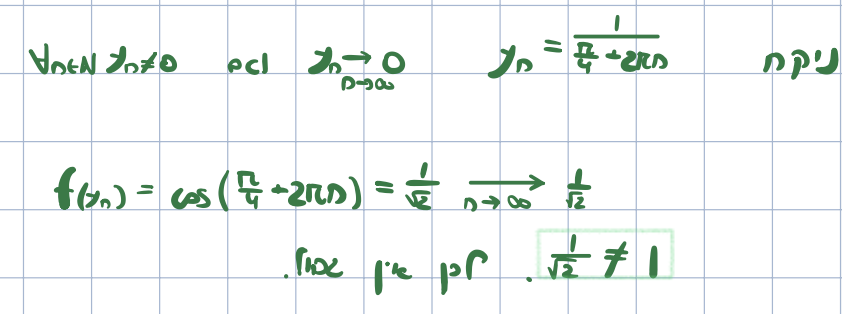 ניקח y_n = \frac{1}{\frac{π}{4} + 2πn} y_n \xrightarrow[n→∞]{} 0 וגם ∀n∈N y_n ≠ 0
f(y_n) = cos(\frac{π}{4} + 2πn) = \frac{1}{√2} \xrightarrow[n→∞]{} \frac{1}{√2}
\frac{1}{√2} ≠ 1 . לכן אין גבול.